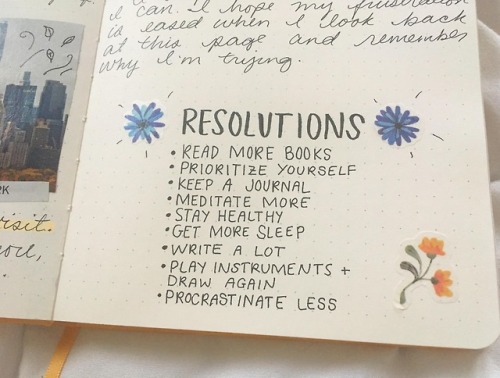 I can. I hope my frustration
is eased when I look back
at this page and remember
why I'm trying.
RK
visit.
RESOLUTIONS
• READ MORE BOOKS
• PRIORITIZE YOURSELF
• KEEP A JOURNAL
• MEDITATE MORE
• STAY HEALTHY
• GET MORE SLEEP
• WRITE A LOT
• PLAY INSTRUMENTS +
DRAW AGAIN
• PROCRASTINATE LESS